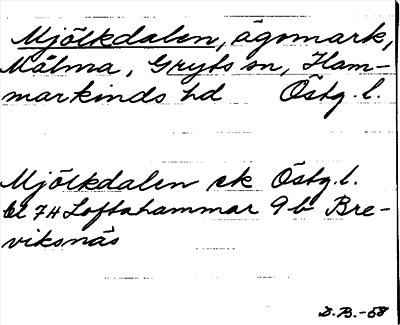 Mjölkdalen, ägomark,
Målma, Gryts sn, Ham-
markinds hd Östg. l.
Mjölkdalen ek Östg. l.
bl 7H Loftahammar 9b Bre-
viksnäs
D.B.-58